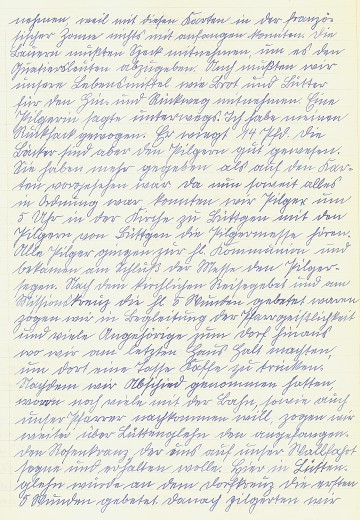 nehmen, weil mit diesen Karten in der franzö-
sischer Zonne nichts mit anfangen konnten. Die
Bauern mußten Speck mitnehmen, um es den
Quatiersleuten abzugeben. Auch mußten wir
unsere Lebensmittel wie Brot und Butter
für den Hin- und Rückweg mitnehmen. Eine
Pilgerin sagte unterwegs: Ich habe meinen
Rucksack gewogen. Er wiegt 14 Pfd. Die
Bäcker sind aber den Pilgern gut gewesen.
Sie haben mehr gegeben als auf den Kar-
ten vorgesehen war. da nun soweit alles
in Ordnung war konnten wir Pilger um
5 Uhr in der Kirche zu Büttgen mit den
Pilgern von Büttgen die Pilgermesse hören.
Alle Pilger gingen zur hl. Kommunion und
bekamen am Schluß der Messe den Pilger-
segen. Nach dem kirchlichen Reisegebet und am
Missionskreuz die hl. 5 Wunden gebetet waren
zogen wir in Begleitung der Pfarrgeistlichkeit
und viele Angehörige zum Dorf hinaus
wo wir am letzten Haus Halt machten,
um dort eine Tasse Kaffe zu trinken.
Nachdem wir Abschied genommen hatten,
wovon noch viele mit der Bahn, sowie auch
unser Pfarrer nachkommen will, zogen wir
weiter über Lüttenglehn den angefangen.
den Rosenkranz der uns auf unser Wallfahrt
segne und erhalten wolle. Hier in Lütten-
glehn wurde an dem Dorfkreuz die ersten
5 Wunden gebetet. danach pilgerten wir